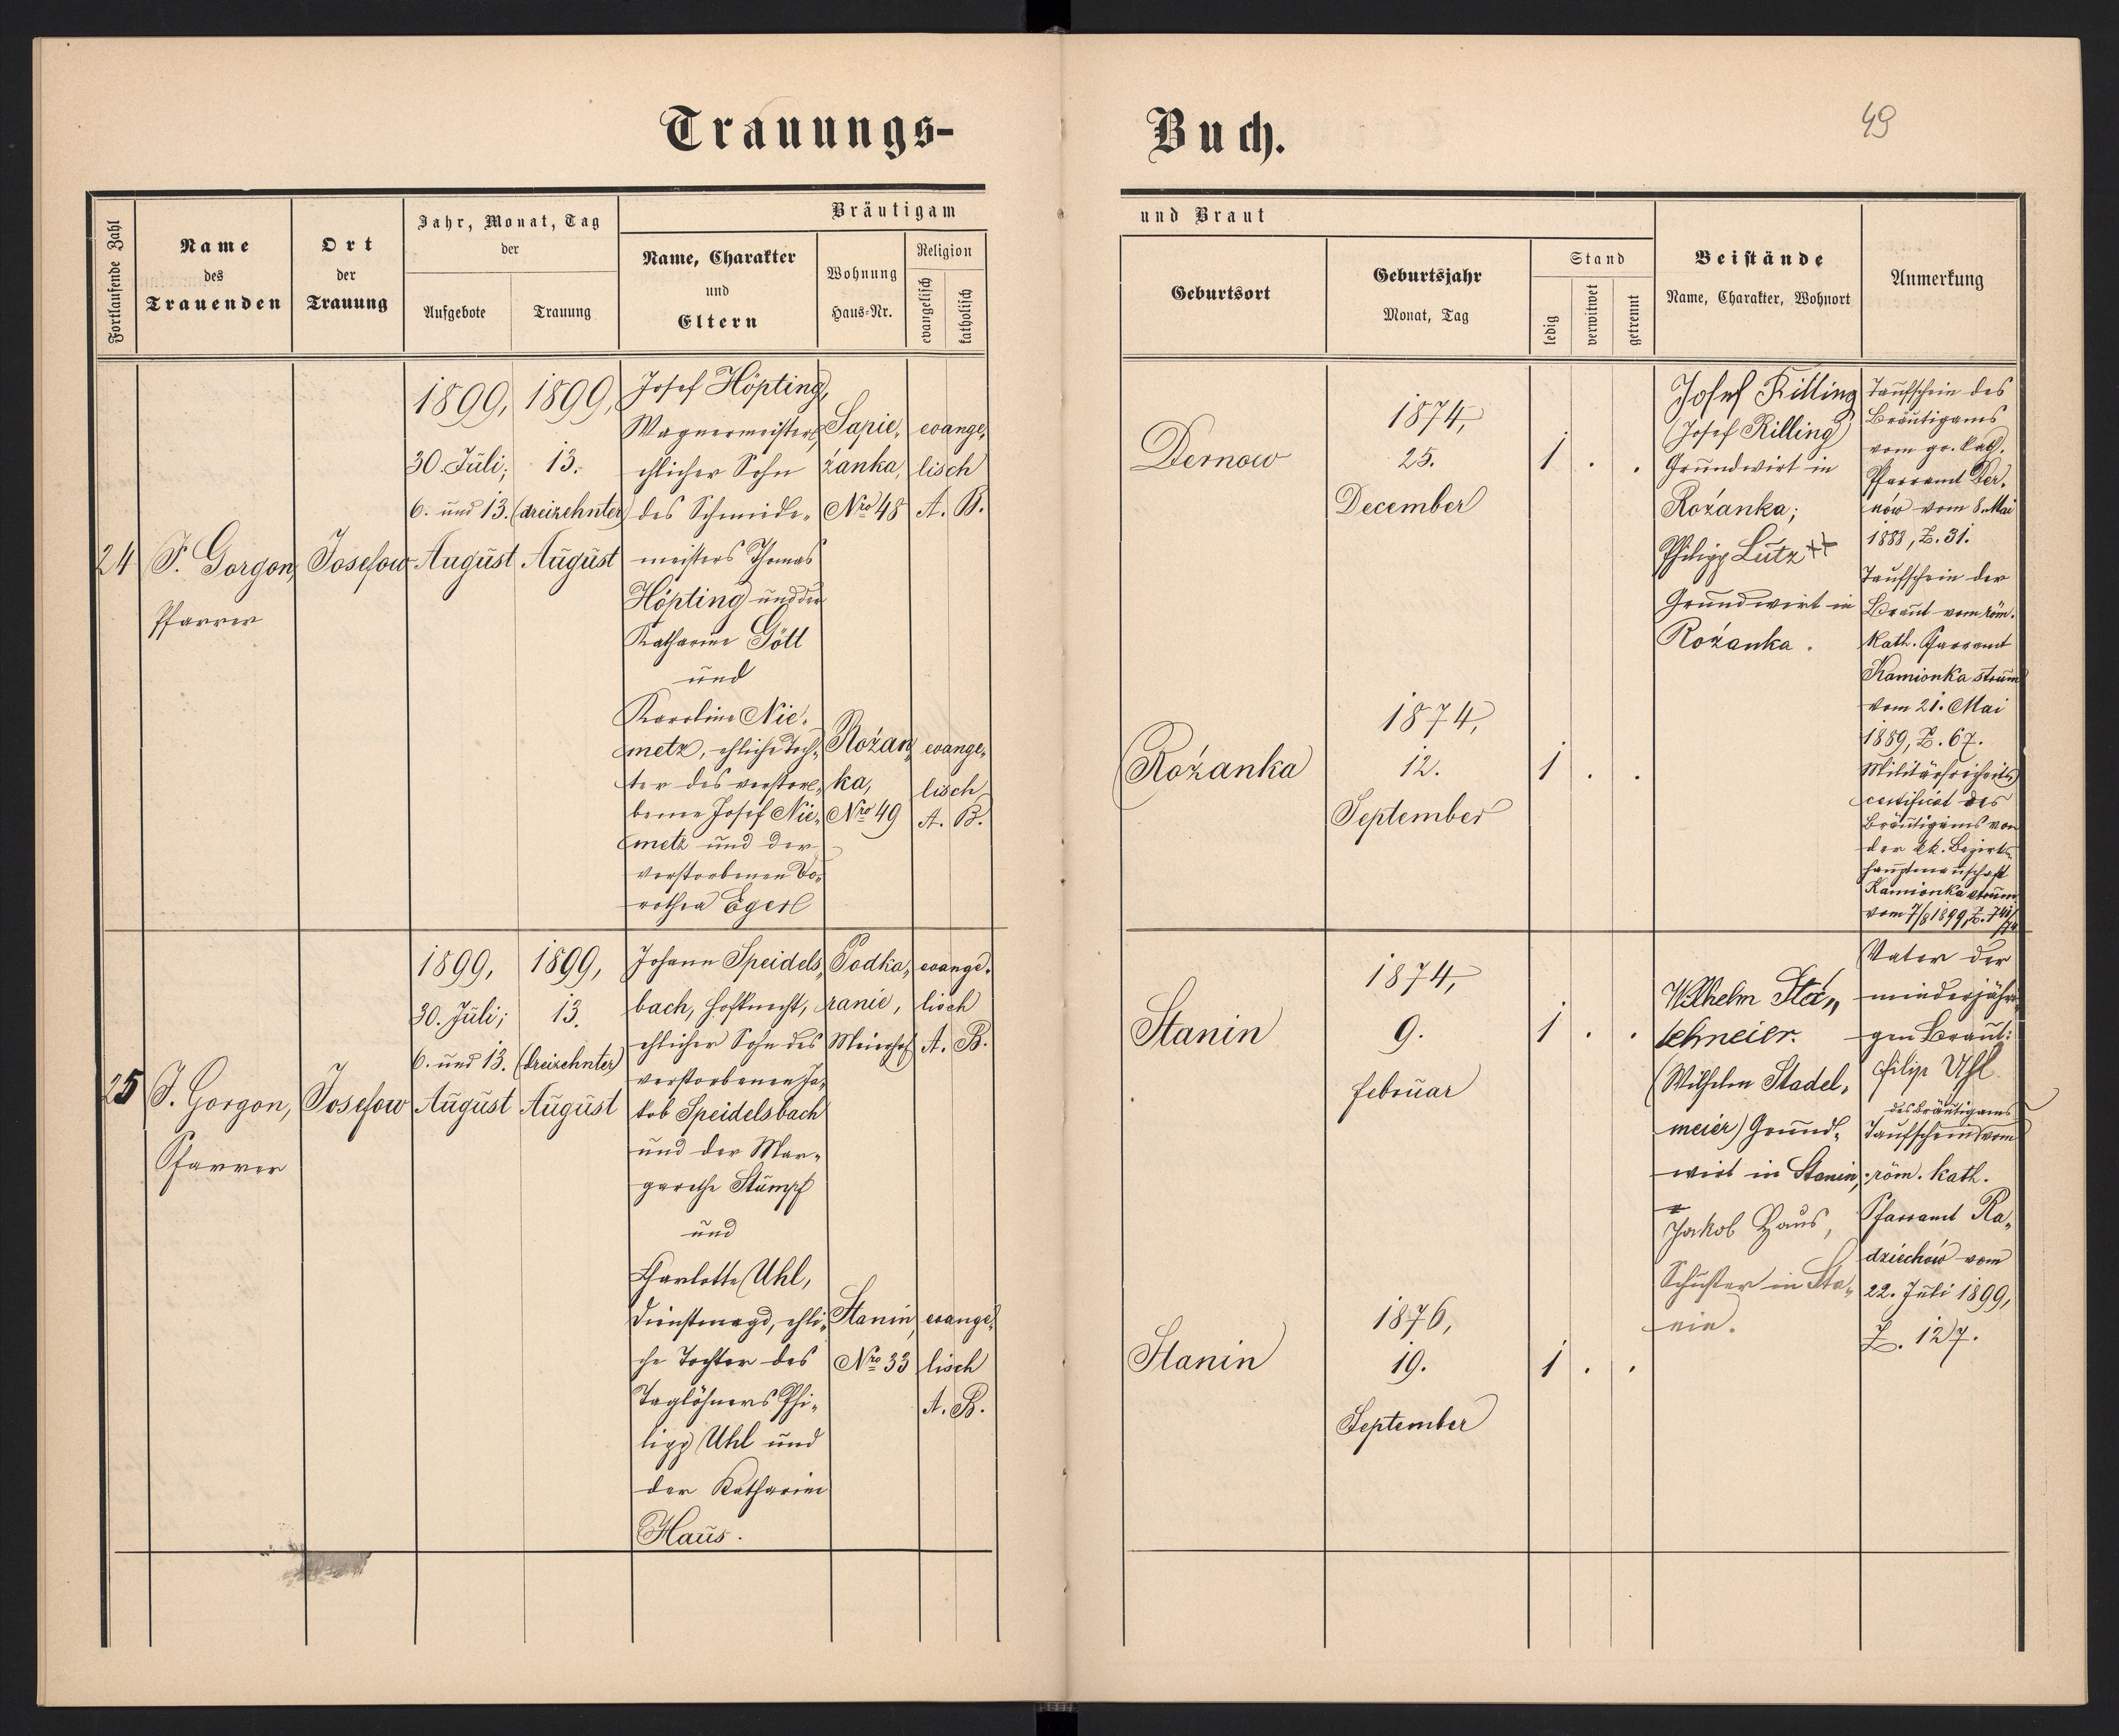 Trauungs-
Buch.
49
Fortlaufende Zahl
Name
des
Trauenden
Ort
der
Trauung
Jahr, Monat, Tag
der
Aufgebote
Trauung
Bräutigam
Name, Charakter
und
Eltern
Wohnung
Haus-Nr.
Religion
evangelisch
katholisch
und Braut
Geburtsort
Geburtsjahr
Monat, Tag
Stand
ledig
verwitwet
getrennt
Beistände
Name, Charakter, Wohnort
Anmerkung
24
J. Gorgon,
Pfarrer
Josefow
1899,
30. Juli;
6. und 13.
August
1899,
13.
(dreizehnter)
August
Josef Höpting,
Wagnermeister,
ehlicher Sohn
des Schmiede-
meisters Thomas
Höpting und der
Katharine Göttl
und
Karoline Nie-
metz, ehliche Toch-
ter des verstor-
benen Josef Nie-
metz und der
verstorbenen Do-
rothea Egerl
Sapie-
żanka,
Nro 48
evange-
lisch
A. B.
Rożan-
ka,
Nro 49
evange-
lisch
A. B.
Dernow
1874,
25.
December
1 . .
Rożanka
1874,
12.
September
1 . .
Josef Rilling
(Josef Rilling)
Grundwirt in
Rożanka;
Philipp Lutz ++
Grundwirt in
Rożanka.
Taufschein des
Bräutigams
vom gr. kath.
Pfarramt Der-
nów vom 8. Mai
1888, Z. 31.
Taufschein der
Braut vom röm.
kath. Pfarramt
Kamionka strum
vom 21. Mai
1889, Z. 67.
Militärfreiheits-
certificat des
Bräutigams von
der k.k. Bezirks-
hauptmannschaft
Kamionka strum
vom 7/8 1899, Z.
25
J. Gorgon,
Pfarrer
Josefow
1899,
30. Juli;
6. und 13.
August
1899,
13.
(dreizehnter)
August
Johann Speidels-
bach, Hofknecht,
ehlicher Sohn des
verstorbenen Ja-
kob Speidelsbach
und der Mar-
garethe Stumpf
und
Charlotte Uhl,
Dienstmagd, ehli-
che Tochter des
Taglöhners Phi-
lipp Uhl und
der Katharine
Haus.
Podka-
ranie,
Meierhof
evange-
lisch
A. B.
Stanin,
Nro 33
evange-
lisch
A. B.
Stanin
1874,
9.
Februar
1 . .
Stanin
1876,
19.
September
1 . .
Wilhelm Sta-
lehneier.
(Wilhelm Stadel-
meier) Grund-
wirt in Stanin,
Jakob Haus,
Schuster in Sta-
nin.
Vater der
minderjähri-
gen Braut:
Filip Uhl
des Bräutigams
Taufschein vom
röm. kath.
Pfarramt Ra-
dziechów vom
22. Juli 1899,
Z. 127.